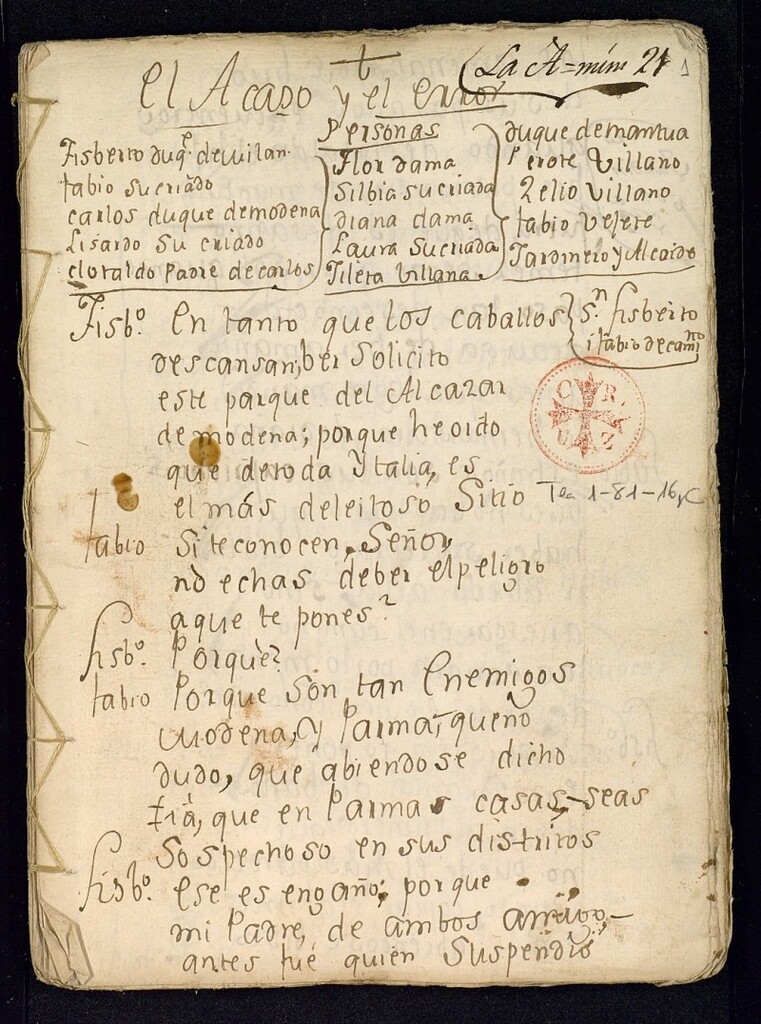 La A=núm 21
1
El Acaso y el error
Personas
Fisberto duqe de milan.
fabio su criado
carlos duque de modena
Lisardo su criado
clotaldo Padre de carlos
Flor dama
Silbia su criada
diana dama
Laura su criada
Fileta villana
duque de mantua
Perote Villano
Zelio villano
fabio vejete
Jardinero y Alcaide
Sn fisberto
i fabio de camno
Fisbo. En tanto que los caballos
descansan, ber solicito
este parque del Alcazar
de modena; porque he oido
que de toda Ytalia, es
el más deleitoso Sitio
fabio Si te conocen, Señor,
no echas de ber el peligro
a que te pones?
fisbo. Porque?
fabio Porque son tan Enemigos
modena, y Parma, que no
dudo, que abiendose dicho
ya, que en Parma casas, seas
Sospechoso en sus distritos
fisbo. Ese es engaño; porque
mi Padre, de ambos amigo,
antes fué quien Suspendió
CRUZ
Tea 1-81-16, C